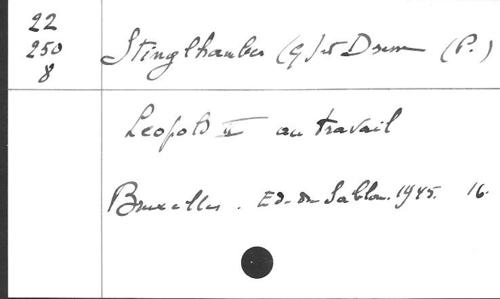 22
250
8
Stinglhamber (G) et Dresse (P.)
Leopold II au travail
Bruxelles. Ed. du Sablon. 1945. 16.